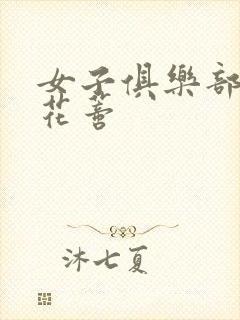 女子俱樂部
花蕾
沐七夏